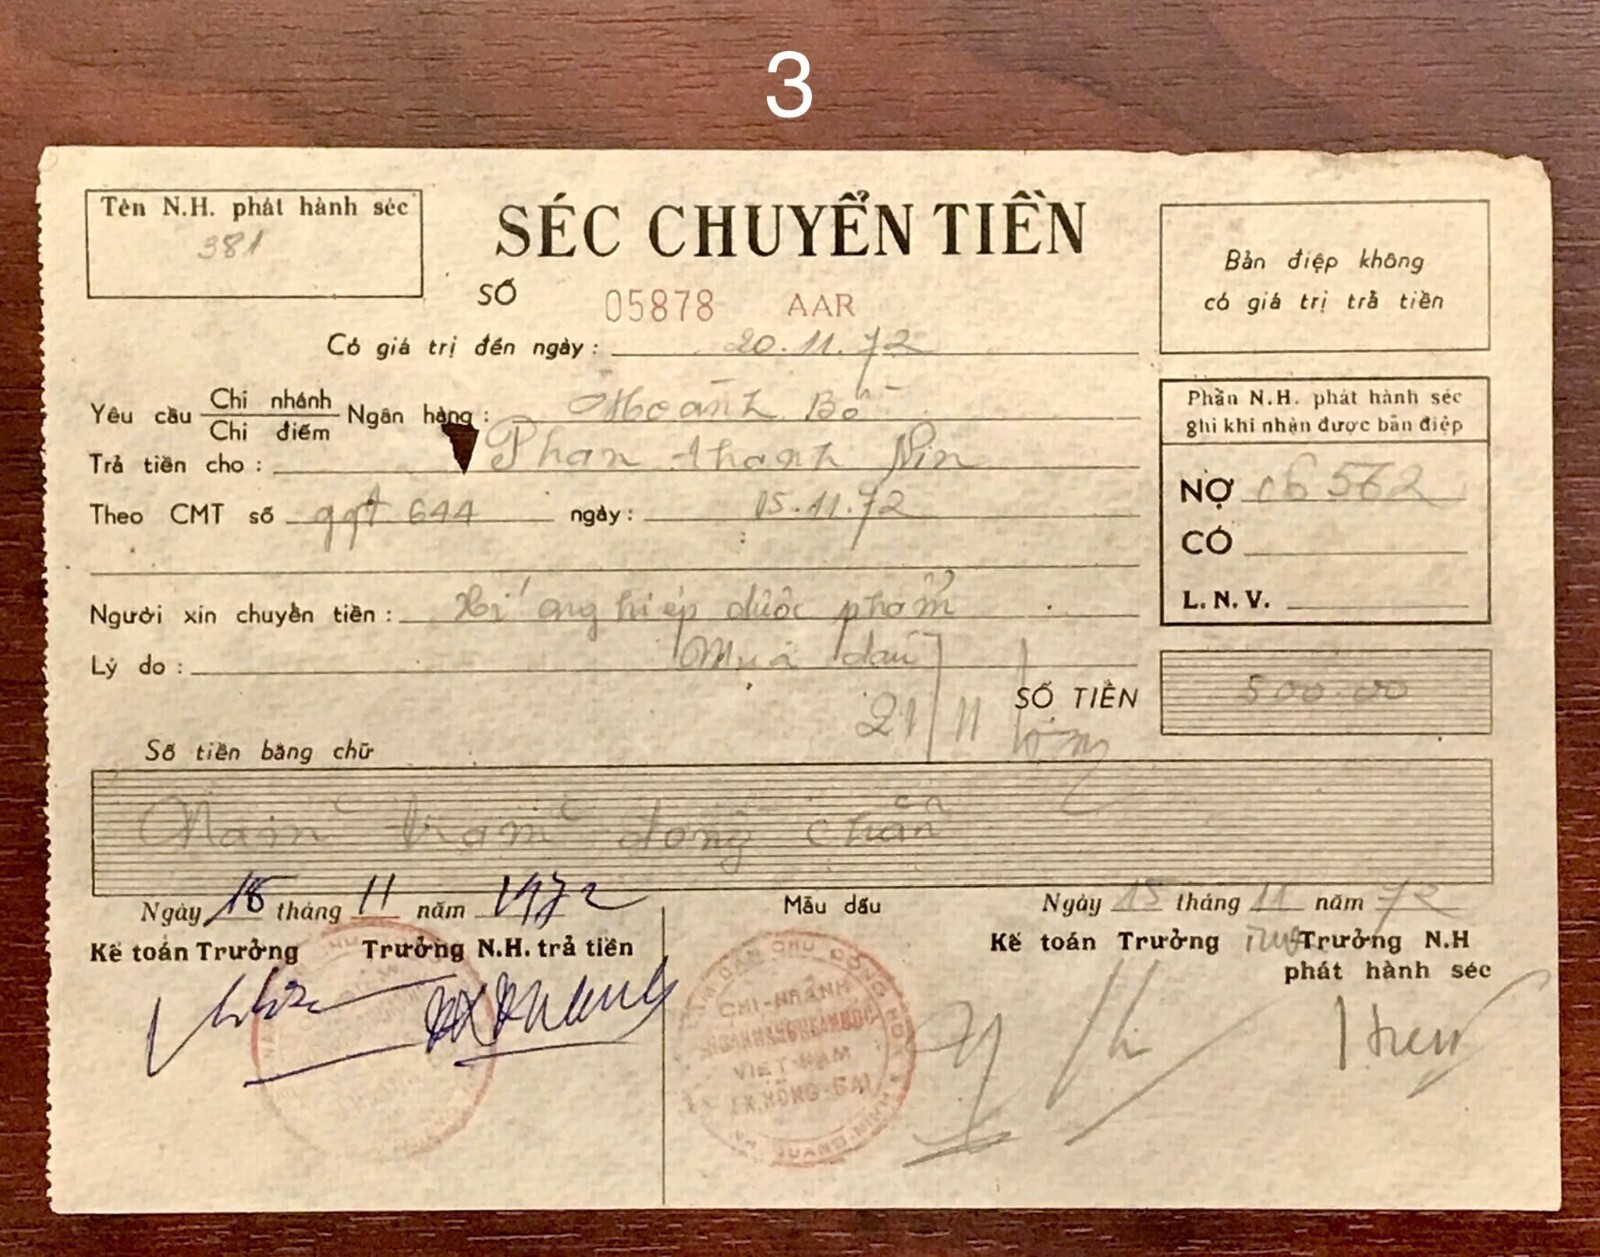 3
Tên N.H. phát hành séc
381
SÉC CHUYỂN TIỀN
SỐ 05878 AAR
Bản điệp không
có giá trị trả tiền
Có giá trị đến ngày: 20.11.72
Yêu cầu Chi nhánh Ngân hàng: Hoành Bồ
Chi điếm
Trả tiền cho: Phan thanh
Theo CMT số 644 ngày: 15.11.72
Phần N.H. phát hành séc
ghi khi nhận được bản điệp
NỢ 562
CÓ
L.N.V.
Người xin chuyển tiền: Xí nghiệp dược phẩm
Lý do: Mua dầu
21/11
SỐ TIỀN 500.00
Số tiền bằng chữ
Năm trăm đồng chẵn
Ngày 18 tháng 11 năm 1972
Kế toán Trưởng Trưởng N.H. trả tiền
Mẫu dấu
CHI-NHÁNH
VIỆT-NAM
HỒNG-GAI
Ngày 15 tháng 11 năm 72
Kế toán Trưởng Trưởng N.H
phát hành séc